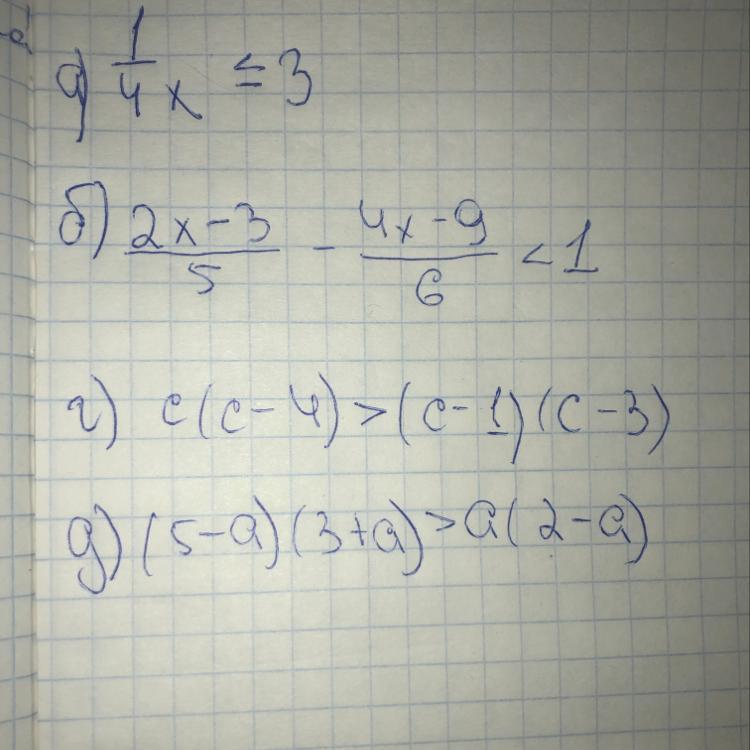 а) 1/4 x ≤ 3
б) (2x-3)/5 - (4x-9)/6 < 1
г) c(c-4)>(c-1)(c-3)
д) (5-a)(3+a)>a(2-a)